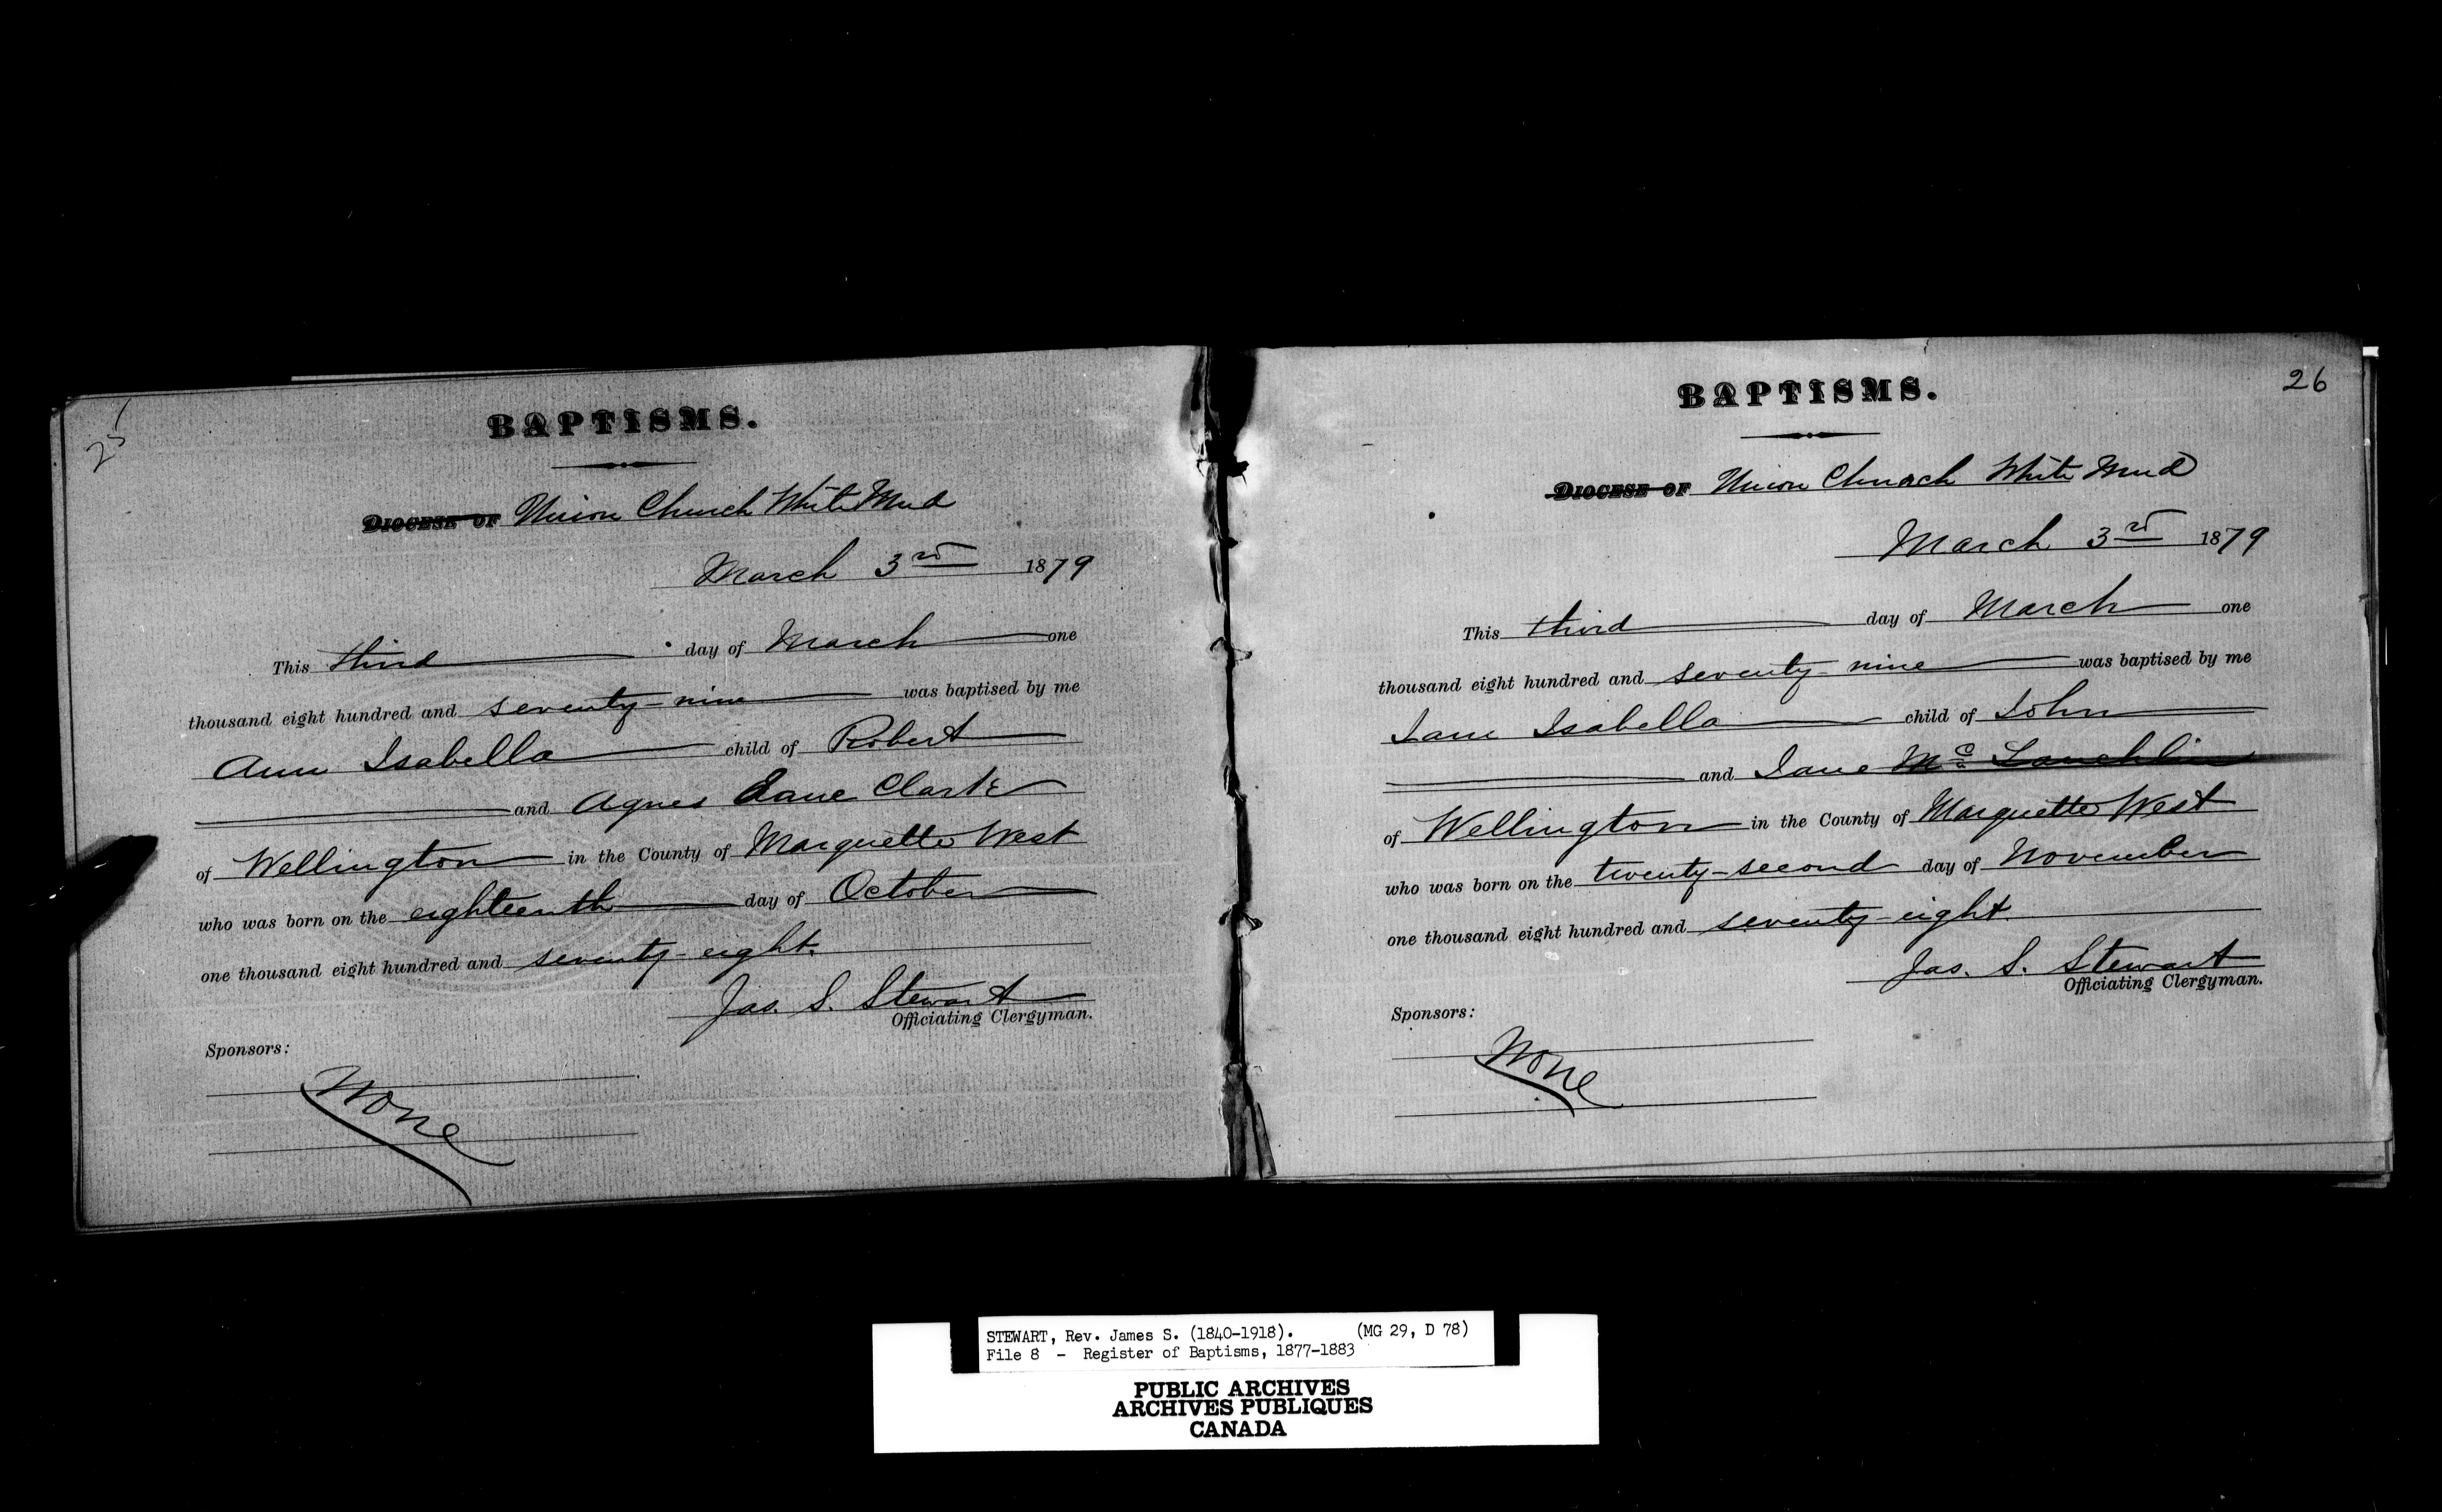 25
BAPTISMS.
DIOCESE OF Union Church White Mud
March 3rd 1879
This third day of March one
thousand eight hundred and seventy-nine was baptised by me
Ann Isabella child of Robert
and Agnes Jane Clark
of Wellington in the County of Marquette West
who was born on the eighteenth day of October
one thousand eight hundred and seventy-eight.
Jas. S. Stewart
Officiating Clergyman.
Sponsors:
None
26
BAPTISMS.
DIOCESE OF Union Church White Mud
March 3rd 1879
This third day of March one
thousand eight hundred and seventy-nine was baptised by me
Jane Isabella child of John
and Jane Mc Lauchlin
of Wellington in the County of Marquette West
who was born on the twenty-second day of November
one thousand eight hundred and seventy-eight.
Jas. S. Stewart
Officiating Clergyman.
Sponsors:
None
STEWART, Rev. James S. (1840-1918). (MG 29, D 78)
File 8 - Register of Baptisms, 1877-1883
PUBLIC ARCHIVES
ARCHIVES PUBLIQUES
CANADA